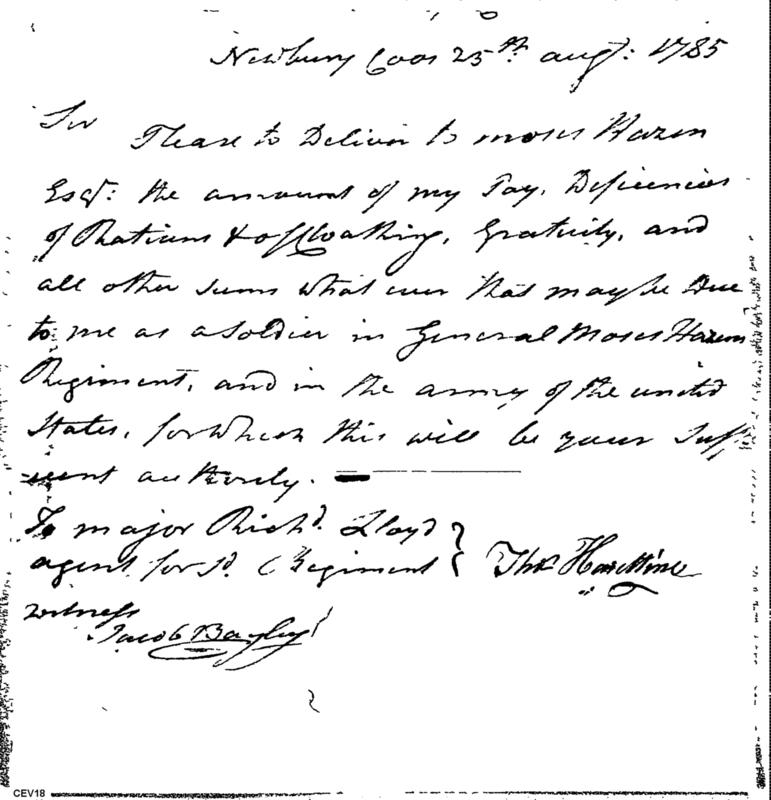 Newbury Coos 25th augt: 1785
Sir Please to Deliver to moses Hazen
Esqr: the amount of my Pay, Deficiencies
of Rations & of Cloathing, Gratuity, and
all other sums what ever that may be Due
to me as a Soldier in General Moses Hazens
Regiment, and in the army of the unitd
States, for which this will be your Suffi
cient authority.
To major Richd. Lloyd
agent for sd. Regiment Thos
witness
Jacob Bayley
CEV18